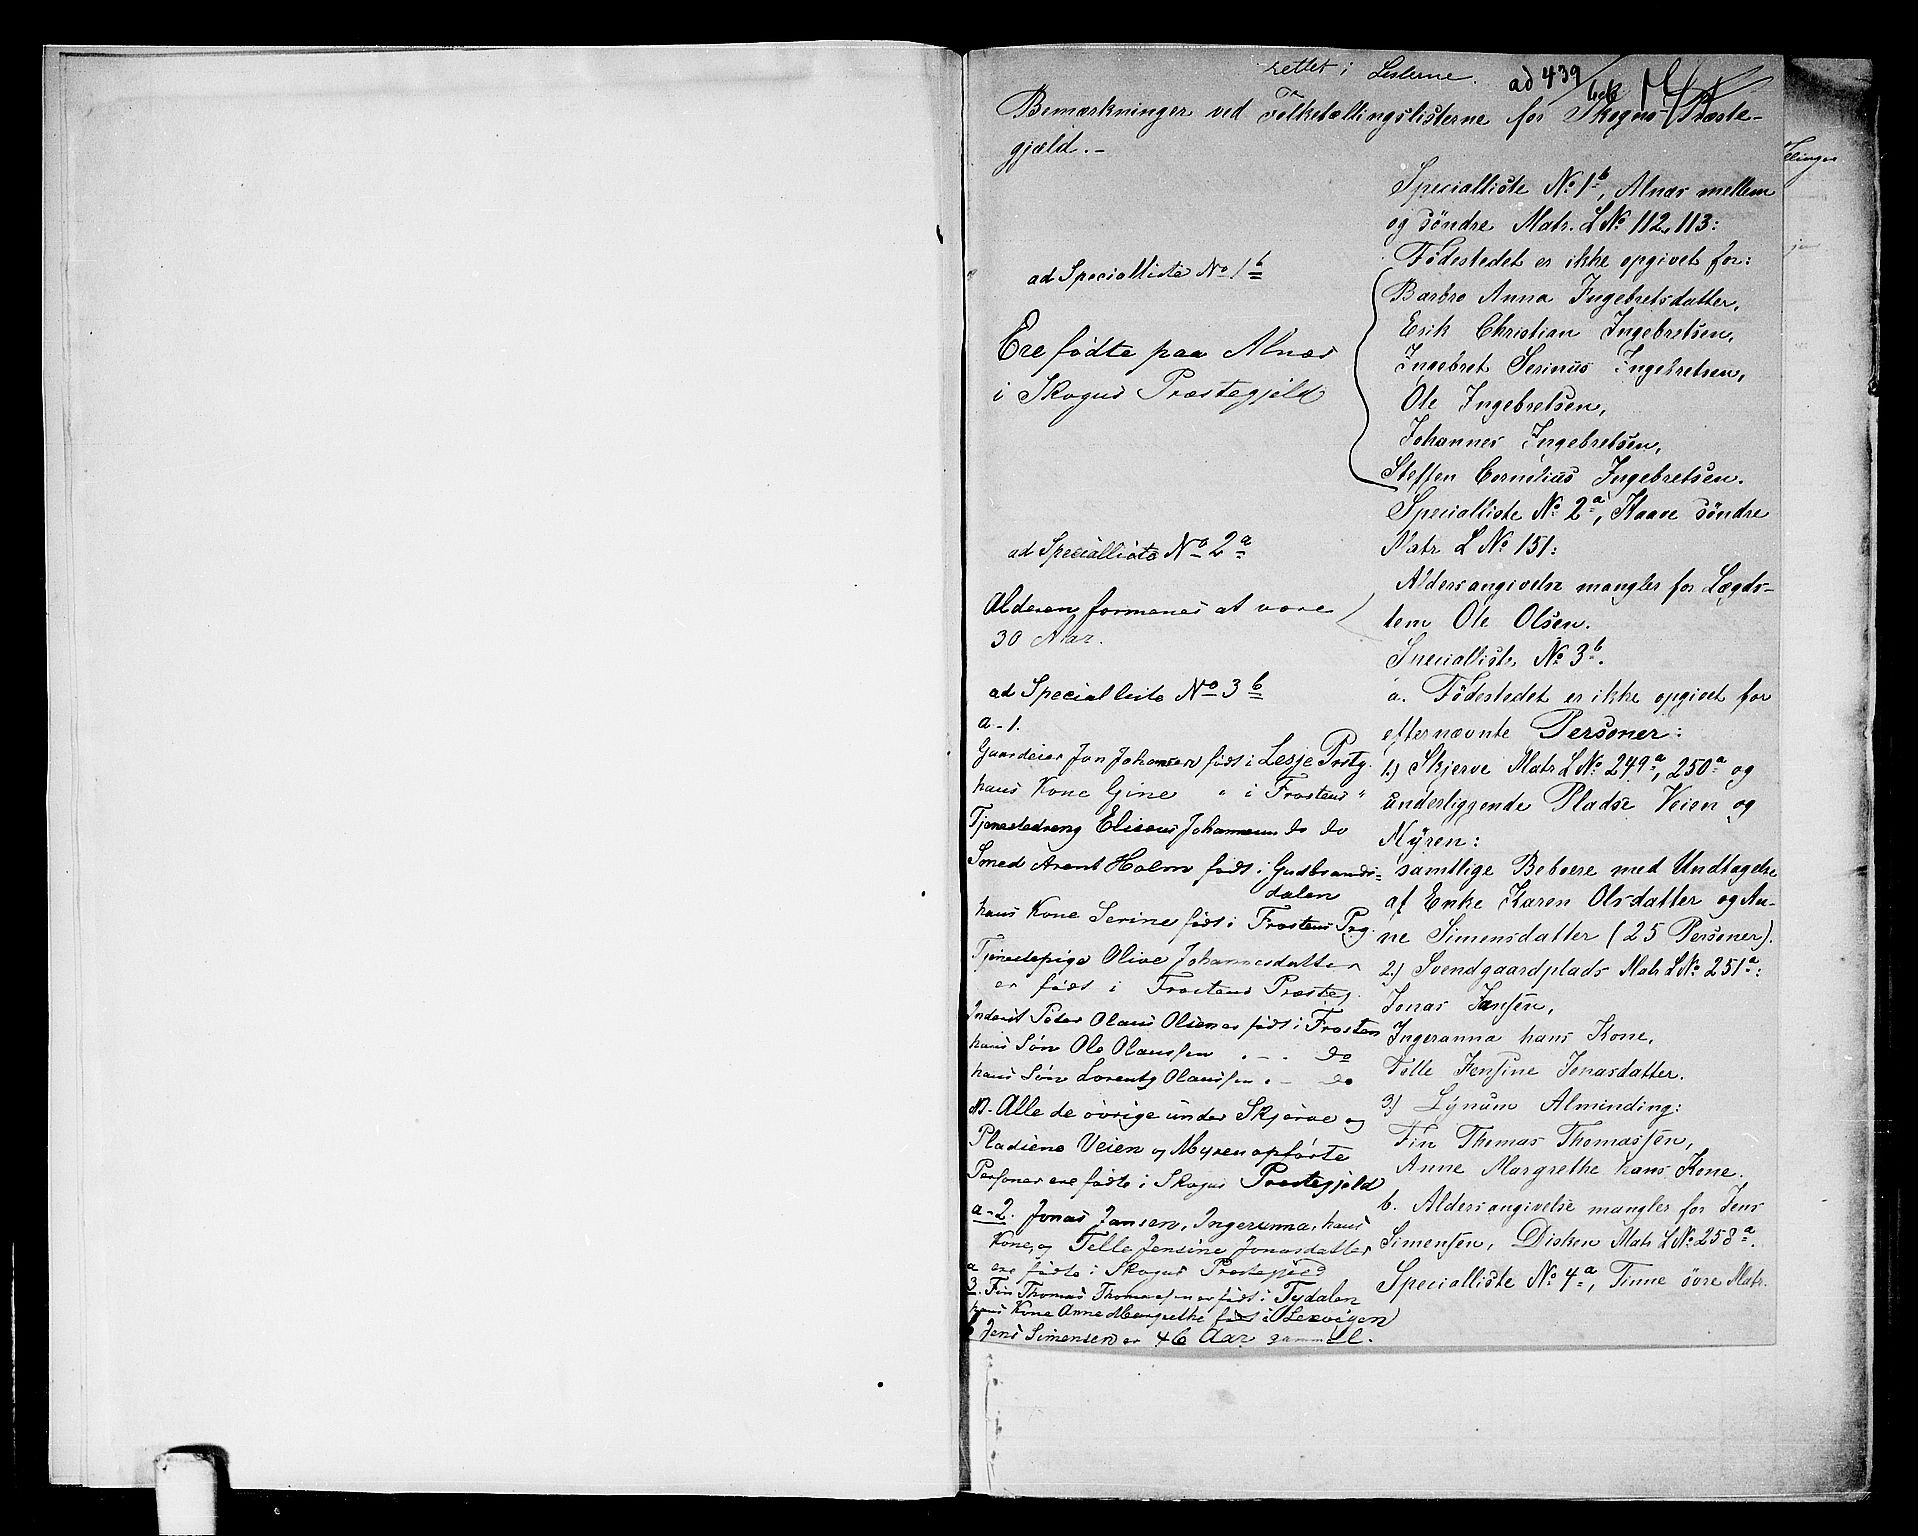 rettet i Listerne.
ad 439/66
Bemærkninger ved Folketællingslisterne for Skogns Præste-
gjæld.-
ad Specialliste No 1b
Ere fødte paa Alnæs
i Skogns Præstegjeld
ad Specialliste No 2a
Alderen formenes at være
30 Aar.
ad Specialliste No 3b
a-1.
Gaardeier Jon Johansen født i Lesje Prstg.
hans Kone Gine " i Frostens "
Tjenestedreng Eliseus Johannesen do do
Smed Arent Holm født i Gudbrands=
dalen
hans Kone Serine født i Frostens Prg.
Tjenestepige Olive Johannesdatter
er født i Frostens Præsteg.
Inderst Peder Olaus Olsen er født i Frosten
hans Søn Ole Olaussen . - . do
hans Søn Lorents Olaussen . - do
NB. Alle de øvrige under Skjerve og
Pladsene Veien og Myren opførte
Personer ere fødte i Skogns Præstegjeld
a-2. Jonas Jansen, Ingeranna, hans
Kone, og Telle Jensine Jonasdatter
ere fødte i Skogns Præstegjeld
a
3. Fin Thomas Thomassen er født i Tydalen
hans Kone Anne Margrethe født i Lexvigen
b Jens Simensen er 46 Aar gammel.
Specialliste No 1b, Alnæs mellem
og søndre Matr. L No 112, 113:
Fødestedet er ikke opgivet for:
Barbro Anna Ingebretsdatter,
Erik Christian Ingebretsen,
Ingebret Serinus Ingebretsen,
Ole Ingebretsen,
Johannes Ingebretsen,
Steffen Cornelius Ingebretsen.
Specialliste No 2a, Haave søndre
Matr L No 151:
Aldersangivelse mangler for Lægds-
lem Ole Olsen.
Specialliste No 3b.
a. Fødestedet er ikke opgivet for
efternævnte Personer:
1.) Skjerve Matr L No 249a, 250a og
underliggende Pladse Veien og
Myren:
samtlige Beboere med Undtagelse
af Enke Karen Olsdatter og An-
ne Simensdatter (25 Personer).
2.) Svendgaardplads Matr L No 251a:
Jonas Jansen,
Ingeranna hans Kone,
Telle Jensine Jonasdatter.
3.) Lynum Alminding:
Fin Thomas Thomassen,
Anne Margrethe hans Kone.
b. Aldersangivelse mangler for Jens
Simensen, Disken Matr L No 258a.
Specialliste No 4a, Tinne øvre Matr.